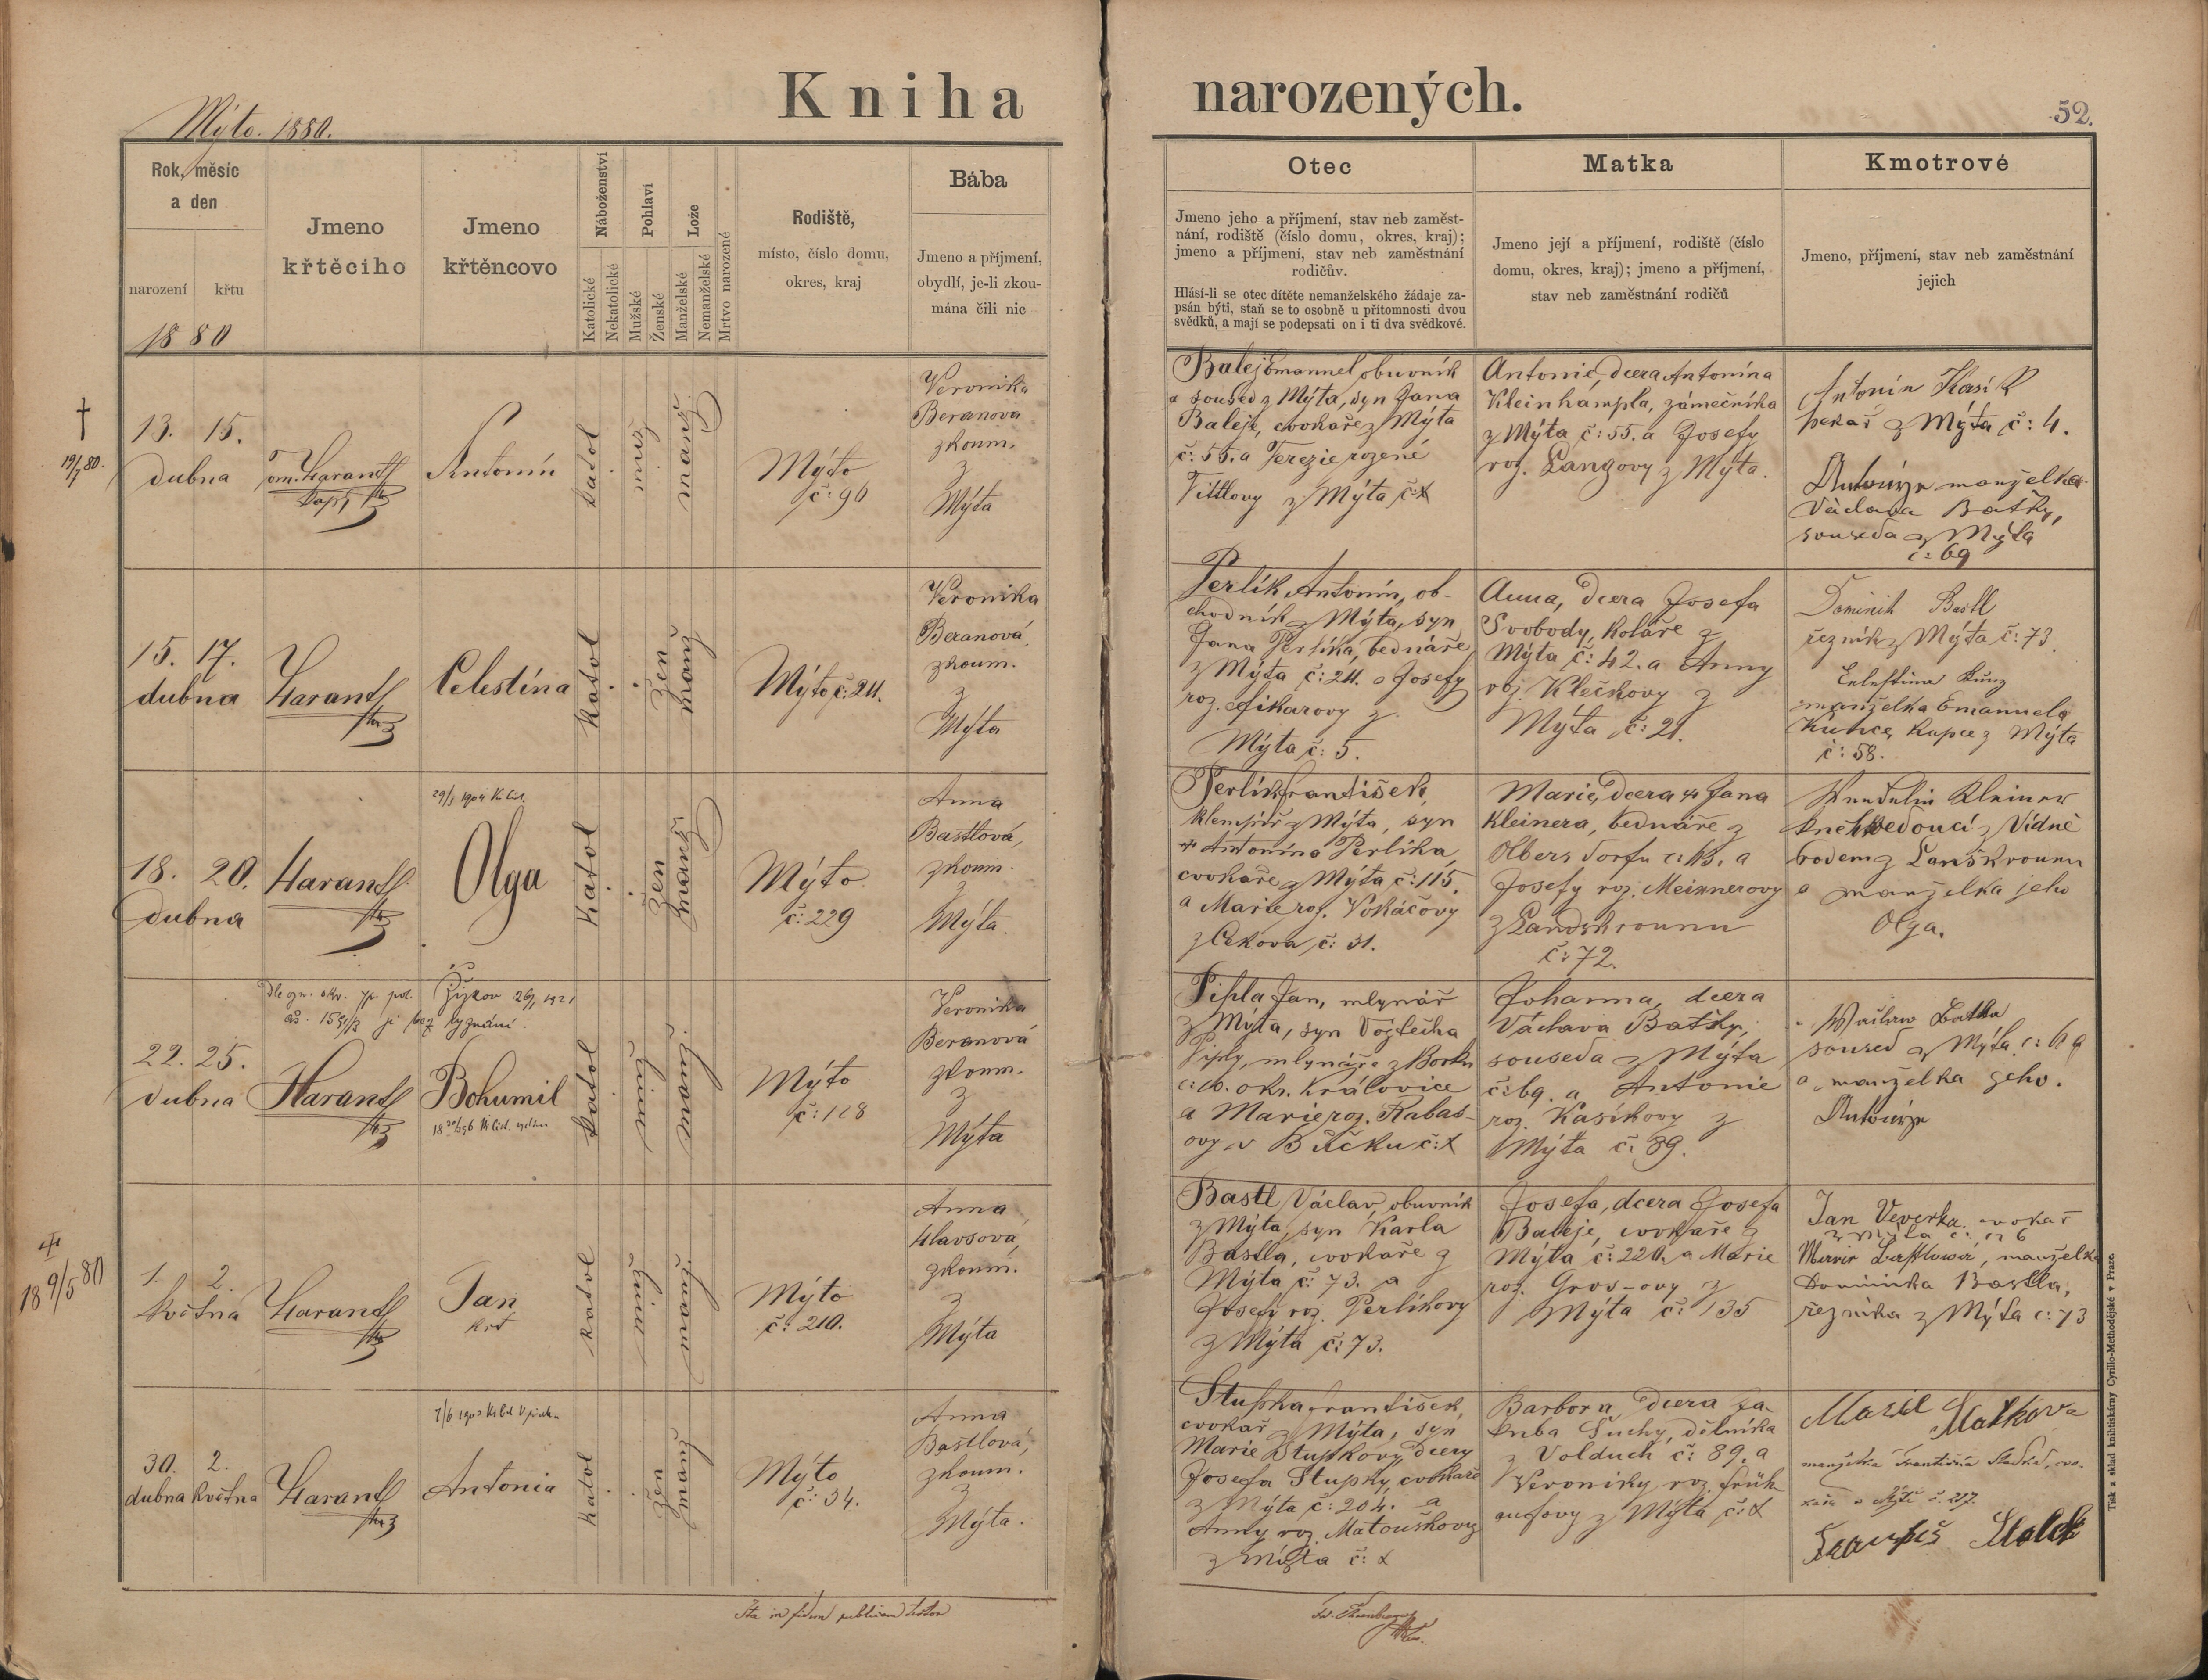 Kniha narozených.
Mýto. 1880.
52.
Rok, měsíc
a den
narození
křtu
1880
Jmeno
křtěcího
Jmeno
křtěncovo
Náboženství
Katolické
Nekatolické
Pohlaví
Mužské
Ženské
Lože
Manželské
Nemanželské
Mrtvo narozené
Rodiště,
místo, číslo domu,
okres, kraj
Bába
Jmeno a příjmení,
obydlí, je-li zkou-
mána čili nic
Otec
Jmeno jeho a příjmení, stav neb zaměst-
nání, rodiště (číslo domu, okres, kraj);
jmeno a příjmení, stav neb zaměstnání
rodičův.
Hlásí-li se otec dítěte nemanželského žádaje za-
psán býti, staň se to osobně u přítomnosti dvou
svědků, a mají se podepsati on i ti dva svědkové.
Matka
Jmeno její a příjmení, rodiště (číslo
domu, okres, kraj); jmeno a příjmení,
stav neb zaměstnání rodičů
Kmotrové
Jmeno, příjmení, stav neb zaměstnání
jejich
†
19/7 80.
13. 15.
dubna
Harantl
kapl
Antonín
katol
muž
manž
Mýto
č: 96
Veronika
Beranova
zkoum.
z
Mýta
Balej Emanuel obuvník
a soused z Mýta, syn Jana
Baleje, cvokaře z Mýta
č: 55. a Terezie rozené
Tittlovy z Mýta č:
Antonie, dcera Antonína
Kleinhampla, zámečníka
z Mýta č: 55. a Josefy
roz. Langovy z Mýta.
Antonín Kasík
pekař z Mýta č: 4.
Antonie manželka
Václava Batky,
souseda z Mýta
č: 69
15. 17.
dubna
Harantl
Celestína
katol
žen
manž
Mýto č: 211.
Veronika
Beranová
zkoum.
z
Mýta
Perlík Antonín, ob-
chodník z Mýta, syn
Jana Perlíka, bednáře
z Mýta č: 211. a Josefy
roz. Fikarovy z
Mýta č: 5.
Anna, dcera Josefa
Svobody, koláře z
Mýta č: 42. a Anny
roz. Klečkovy z
Mýta č: 21.
Dominik Bastl
řezník z Mýta č: 73.
Celestina Kunz
manželka Emanuela
Kunce, kupce z Mýta
č: 58.
18. 20.
dubna
Harantl
Olga
katol
žen
manž
Mýto
č: 229
Anna
Bastlová,
zkoum.
z
Mýta.
Perlík František,
klempíř z Mýta, syn
Antonína Perlíka,
cvokaře z Mýta č: 115.
a Marie roz. Vokáčovy
z Cekova č: 31.
Marie, dcera Jana
Kleinera, bednáře z
Olbersdorfu č: 13. a
Josefy roz. Meixnerovy
z Landskrounu
č: 72.
Wendelin Kleiner
knihvedoucí z Vídně
rodem z Lanškrounu
a manželka jeho
Olga.
22. 25.
dubna
Harantl
Bohumil
katol
muž
manž
Mýto
č: 128
Veronika
Beranová
zkoum.
z
Mýta
Pipla Jan, mlynář
z Mýta, syn Vojtěcha
Piply, mlynáře z Borku
č: 16. okr. Královice
a Marie roz. Rabas-
ovy v Bučku č:
Johanna, dcera
Václava Batky,
souseda z Mýta
č: 69. a Antonie
roz. Kasíkovy z
Mýta č: 89.
Waclaw Batka
soused z Mýta č: 69
a manželka jeho.
Antonie
18 9/5 80
1. 2.
května
Harantl
Jan
křt
katol
muž
manž
Mýto
č: 210.
Anna
Hlavsová,
zkoum.
z
Mýta
Bastl Václav, obuvník
z Mýta, syn Karla
Bastla, cvokaře z
Mýta č: 73. a
Josefy roz. Perlíkovy
z Mýta č: 73.
Josefa, dcera Josefa
Baleje, cvokaře z
Mýta č: 220. a Marie
roz. Gros-ovy z
Mýta č: 135
Jan Veverka cvokař
Marie Bastlowa, manželka
Dominika Bastla,
řezníka z Mýta č: 73
30. 2.
dubna května
Harantl
Antonia
katol
žen
manž
Mýto
č: 34.
Anna
Bastlová,
zkoum.
z
Mýta.
Stupka František,
cvokař z Mýta, syn
Marie Stupkovy, dcery
Josefa Stupky, cvokaře
z Mýta č: 204. a
Anny roz. Matouškovy
z Mýta č:
Barbora, dcera Ja-
kuba Suchy, dělníka
z Volduch č: 89. a
Veroniky roz. Früh-
aufovy z Mýta č:
manželka Františka
v Mýtě č. 217.
Ita in fidem publicam testor
Tisk a sklad knihtiskárny Cyrillo-Methodějské v Praze.